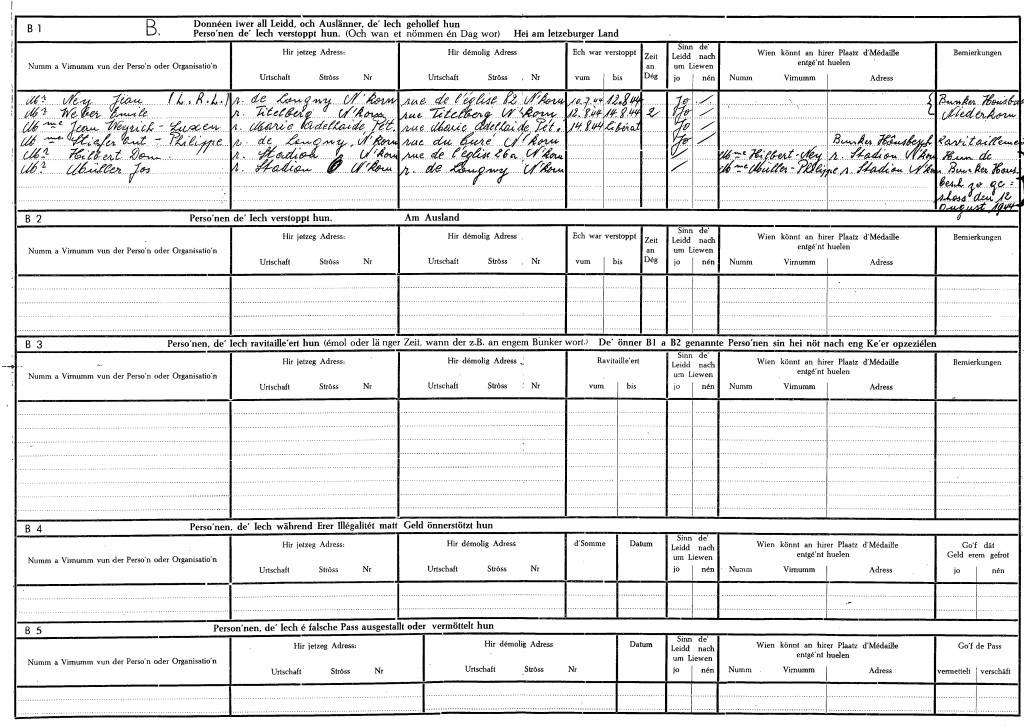 B 1 B. Donnéen iwer all Leidd, och Auslänner, de' Iech gehollef hun
Perso'nen de' Iech verstoppt hun. (Och wan et nömmen én Dag wor) Hei am letzeburger Land
Numm a Virnumm vun der Perso'n oder Organisatio'n Hir jetzeg Adress: Hir démolig Adress Ech war verstoppt Zeit an Dég Sinn de' Leidd nach um Liewen Wien könnt an hirer Plaatz d'Médaille entgé'nt huelen Bemierkungen
Urtschaft Strôss Nr Urtschaft Strôss Nr vum bis jo nén Numm Virnumm Adress
Mr Ney Jean (L.R.L.) r. de Longwy N'korn rue de l'église 82 N'korn 10.7.44 12.8.44 Jo Bunker Hônsbusch
Mr Weber Emile r. Titelberg N'korn rue Titelberg N'korn 12.8.44 14.8.44 2 Jo Niederkorn
Mme Jean Weyrich-Luxen r. Marie Adelhaide Pét. rue Marie Adelhaide Pét. 14.8.44 Libérat. Jo
Mme - Philippe r. de Longwy, N'korn rue du Curé N'korn Jo Bunker Hônsbesch
Mr Hilbert Dom. r. Stadion N'korn rue de l'église 26a N'korn Mme Hilbert-Ney r. Stadion N'korn Hun de
Mr Müller Jos r. Stadion 6 N'korn r. de Longwy N'korn Mme Müller-Philippe r. Stadion N'korn Bunker Hôns
besch zo ge=
schoss den 12
August 1944
B 2 Perso'nen de' Iech verstoppt hun. Am Ausland
Numm a Virnumm vun der Perso'n oder Organisatio'n Hir jetzeg Adress: Hir démolig Adress Ech war verstoppt Zeit an Dég Sinn de' Leidd nach um Liewen Wien könnt an hirer Plaatz d'Médaille entgé'nt huelen Bemierkungen
Urtschaft Strôss Nr Urtschaft Strôss Nr vum bis jo nén Numm Virnumm Adress
B 3 Perso'nen, de' Iech ravitaille'ert hun (émol oder länger Zeit, wann der z.B. an engem Bunker wort.) De' önner B1 a B2 genannte Perso'nen sin hei nöt nach eng Ke'er opzeziélen
Numm a Virnumm vun der Perso'n oder Organisatio'n Hir jetzeg Adress: Hir démolig Adress Ravitaille'ert Sinn de' Leidd nach um Liewen Wien könnt an hirer Plaatz d'Médaille entgé'nt huelen Bemierkungen
Urtschaft Strôss Nr Urtschaft Strôss Nr vum bis jo nén Numm Virnumm Adress
B 4 Perso'nen, de' Iech während Erer Illégalitét matt Geld önnerstötzt hun
Numm a Virnumm vun der Perso'n oder Organisatio'n Hir jetzeg Adress: Hir démolig Adress d'Somme Datum Sinn de' Leidd nach um Liewen Wien könnt an hirer Plaatz d'Médaille entgé'nt huelen Go'f dât Geld erem gefrot
Urtschaft Strôss Nr Urtschaft Strôss Nr jo nén Numm Virnumm Adress jo nén
B 5 Person'nen, de' Iech é falsche Pass ausgestallt oder vermöttelt hun
Numm a Virnumm vun der Perso'n oder Organisatio'n Hir jetzeg Adress: Hir démolig Adress Datum Sinn de' Leidd nach um Liewen Wien könnt an hirer Plaatz d'Médaille entgé'nt huelen Go'f de Pass
Urtschaft Strôss Nr Urtschaft Strôss Nr jo nén Numm Virnumm Adress vermettelt verschäft